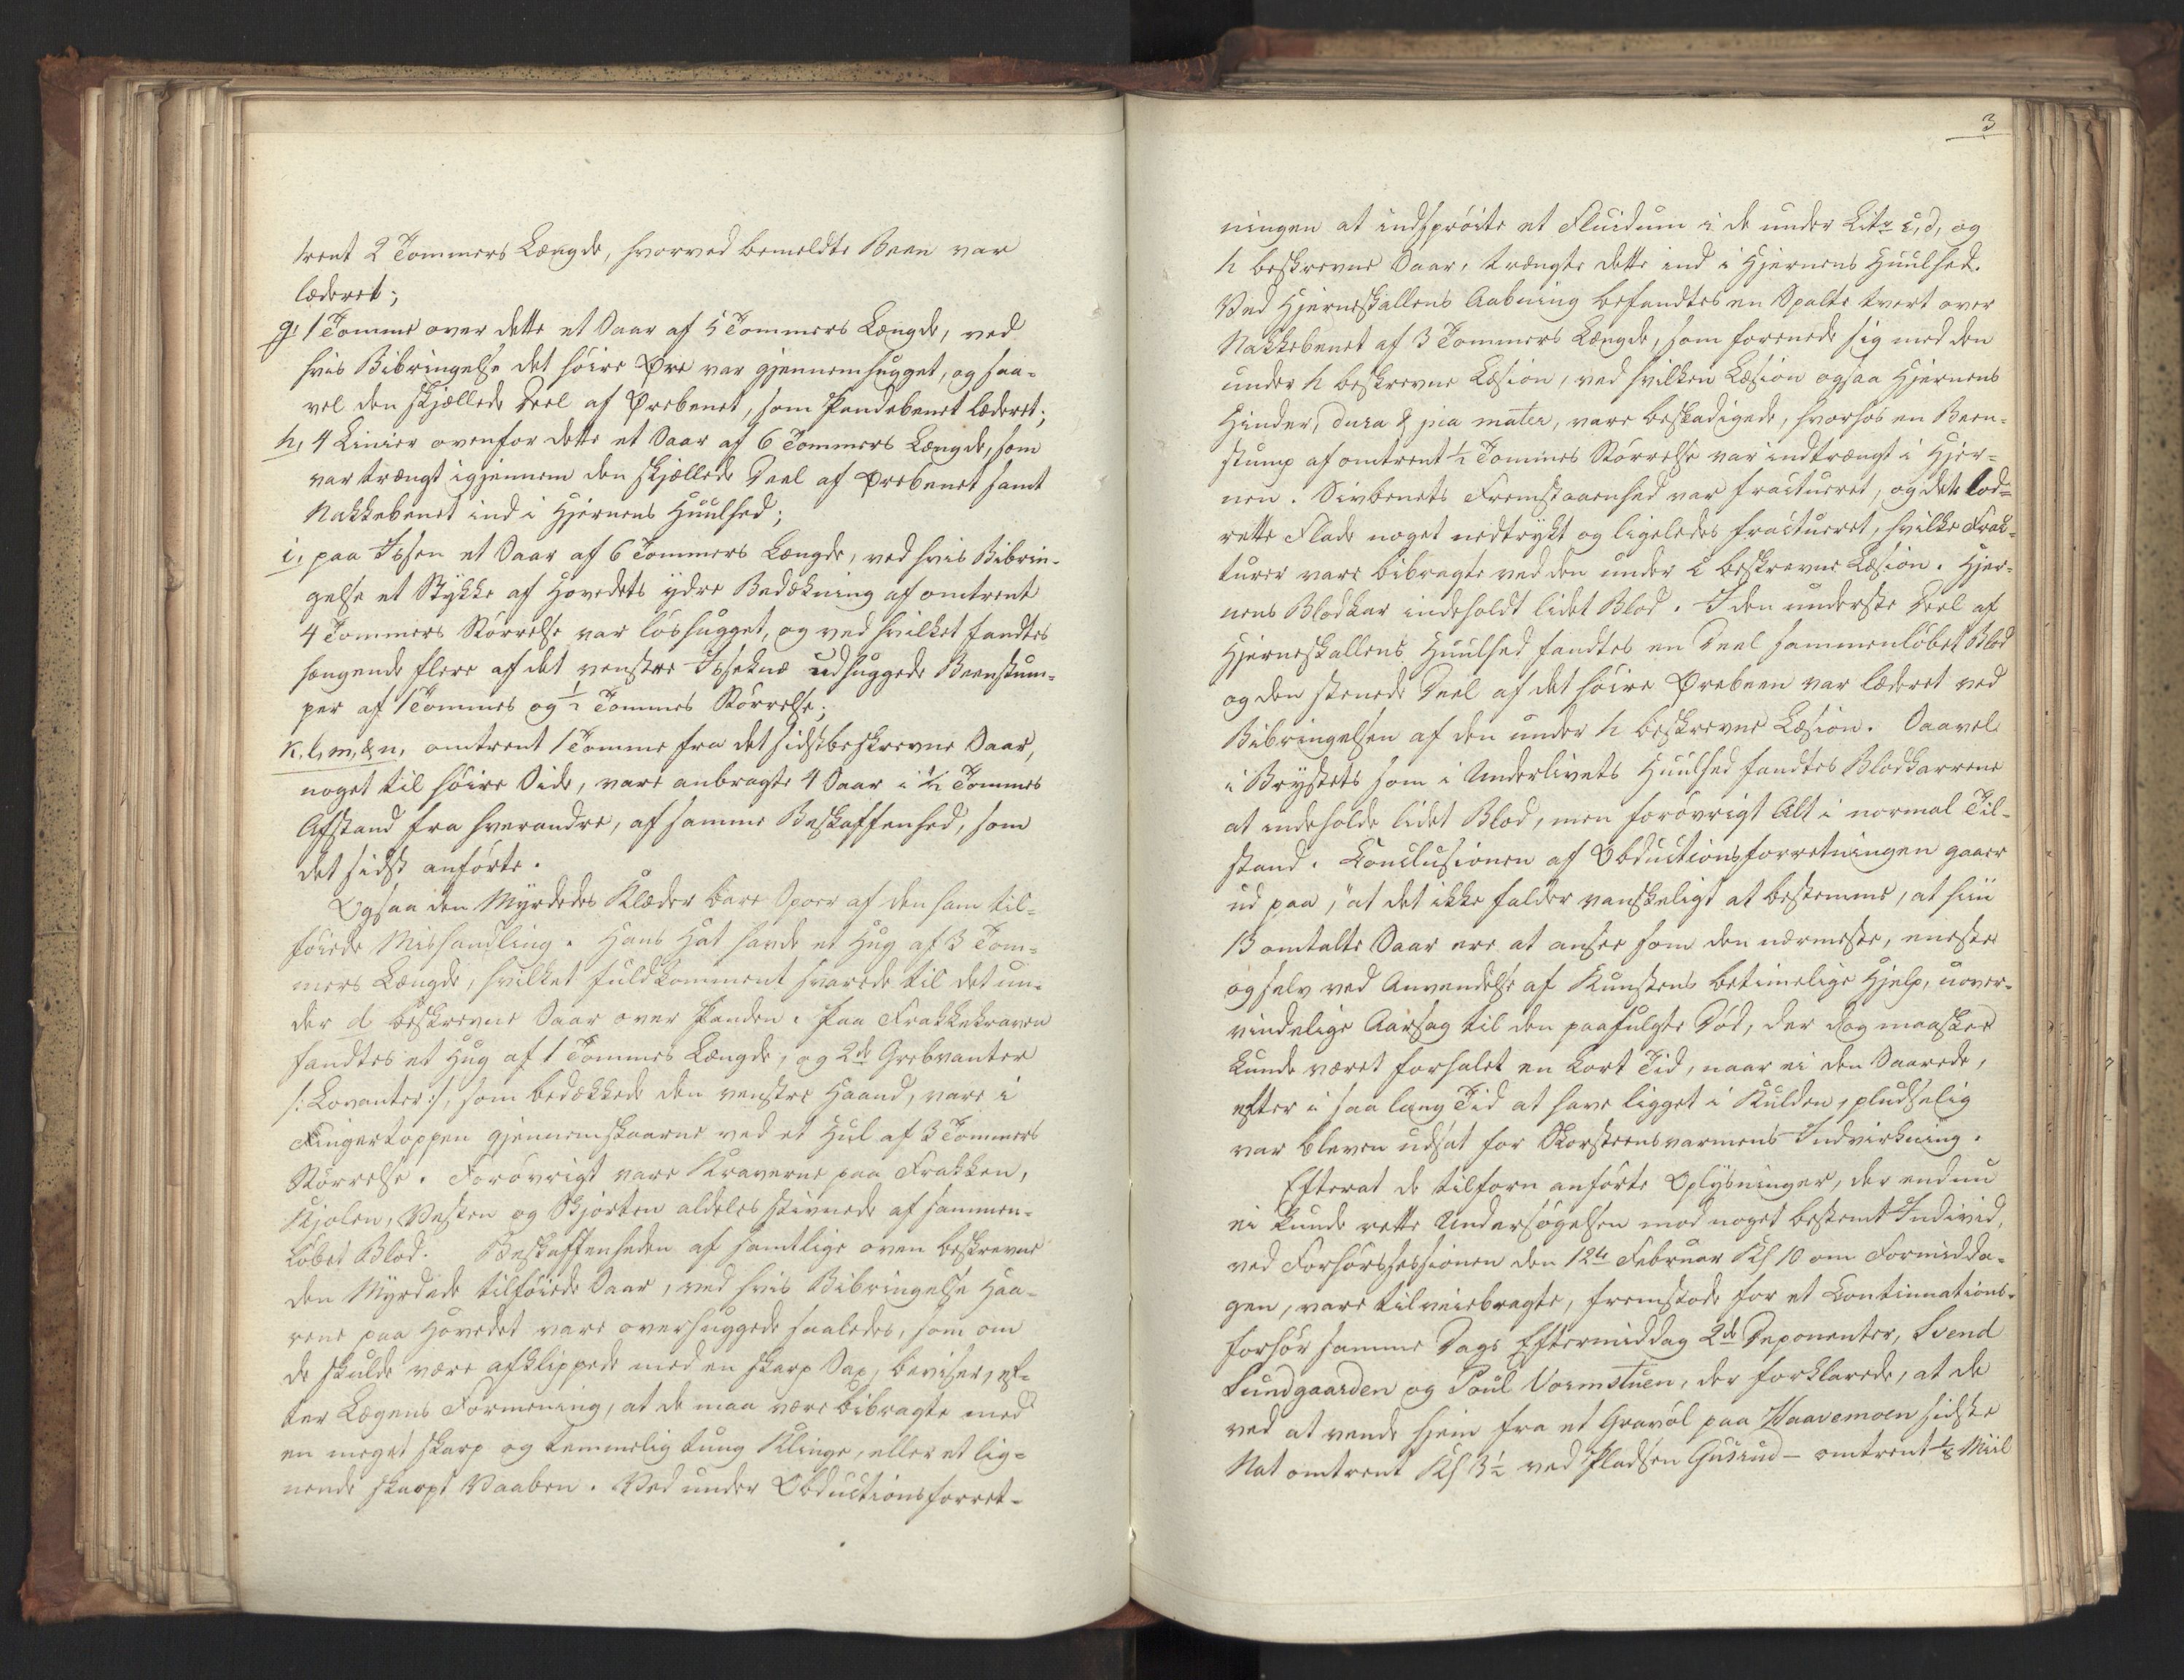 trent 2 Tommers Længde, hvorved bemeldte Been var
læderet;
g, 1 Tomme over dette et Saar af 5 Tommers Længde, ved
hvis Bibringelse det höire Øre var gjennemhugget, og saa-
vel den skjællede Deel af Ørebenet, som Pandebenet læderet;
h, 4 Linier ovenfor dette et Saar af 6 Tommers Længde, som
var trængt igjennem den skjællede Deel af Ørebenet samt
Nakkebenet ind i Hjernens Huulhed;
i, paa Issen et Saar af 6 Tommers Længde, ved hvis Bibrin-
gelse et Stykke af Hovedets ydre Bedækning af omtrent
4 Tommers Störrelse var löshugget, og ved hvilket fandtes
hængende flere af det venstre udhuggede Beenstum-
per af 1 Tommes og ½ Tommes Störrelse;
k, l, m, & n, omtrent 1 Tomme fra det sidstbeskrevne Saar,
noget til höire Side, vare anbragte 4 Saar i ½ Tommes
Afstand fra hverandre, af samme Beskaffenhed, som
det sidst anförte.
Ogsaa den Myrdedes Klæder bare Spoer af den ham til-
föiede Mishandling. Hans Hat havde et Hug af 3 Tom-
mers Længde, hvilket fuldkomment svarede til det un-
der d beskrevne Saar over Panden. Paa Frakkekraven
fandtes et Hug af 1 Tommes Længde, og 2de Grebvanter
/: Lovanter :/, som bedækkede den venstre Haand, vare i
Fingertoppen gjennemskaarne ved et Hul af 3 Tommers
Störrelse. Forövrigt vare Kraverne paa Frakken,
Kjolen, Vesten og Skjorten aldeles stivnede af sammen-
löbet Blod. Beskaffenheden af samtlige oven beskrevne
den Myrdede tilföiede Saar, ved hvis Bibringelse Haa-
rene paa Hovedet vare overhuggede saaledes, som om
de skulde være afklippede med en skarp Sax, beviser, ef-
ter Lægens Formening, at de maa være bibragte med
en meget skarp og temmelig tung Klinge, eller et lig-
nende skarpt Vaaben. Ved under Obductionsforret-
3
ningen at indspröite et Fluidum i de under Litr c, d, og
h beskrevne Saar, trængte dette ind i Hjernens Huulhed.
Ved Hjerneskallens Aabning befandtes en Spalte tvert over
Nakkebenet af 3 Tommers Længde, som forenede sig med den
under h beskrevne Læsion, ved hvilken Læsion ogsaa Hjernens
Hinder, dura & pia mater, vare beskadigede, hvorhos en Been-
stump af omtrent ½ Tommes Störrelse var indtrængt i Hjer-
nen. Sivbenets Fremstaaenhed var fractureret, og dets lod-
rette Flade noget nedtrykt og ligeledes fractureret, hvilke Frac-
turer vare bibragte ved den under c beskrevne Læsion. Hjer-
nens Blodkar indeholdt lidet Blod. I den underste Deel af
Hjerneskallens Huulhed fandtes en Deel sammenlöbet Blod
og den stenede Deel af det höire Ørebeen var læderet ved
Bibringelsen af den under h beskrevne Læsion. Saavel
i Brystets som i Underlivets Huulhed fandtes Blodkarrene
at indeholde lidet Blod, men forövrigt Alt i normal Til-
stand. Conclusionen af Obductionsforretningen gaaer
ud paa, "at det ikke falder vanskeligt at bestemme, at hiin
13 omtalte Saar ere at ansee som den nærmeste, eneste
og selv ved Anvendelse af Kunstens betimelige Hjelp, uover-
vindelige Aarsag til den paafulgte Död, der dog maaskee
kunde været forhalet en kort Tid, naar ei den Saarede,
efter i saa lang Tid at have ligget i Kulden, pludselig
var bleven udsat for Skorsteensvarmens Indvirkning.
Efterat de tilforn anförte Oplysninger, der endnu
ei kunde rette Undersögelsen mod noget bestemt Individ,
ved Forhörssessionen den 12te Februar Kl 10 om Formidda-
gen, vare tilveiebragte, fremstode for et Continuations-
forhör samme Dags Eftermiddag 2de Deponenter, Svend
Sundgaarden og Poul Vormstuen, der forklarede, at de
ved at vende hjem fra et Gravöl paa Haavemoen sidste
Nat omtrent Kl 3½ ved Pladsen Gusrud - omtrent ⅛ Miil